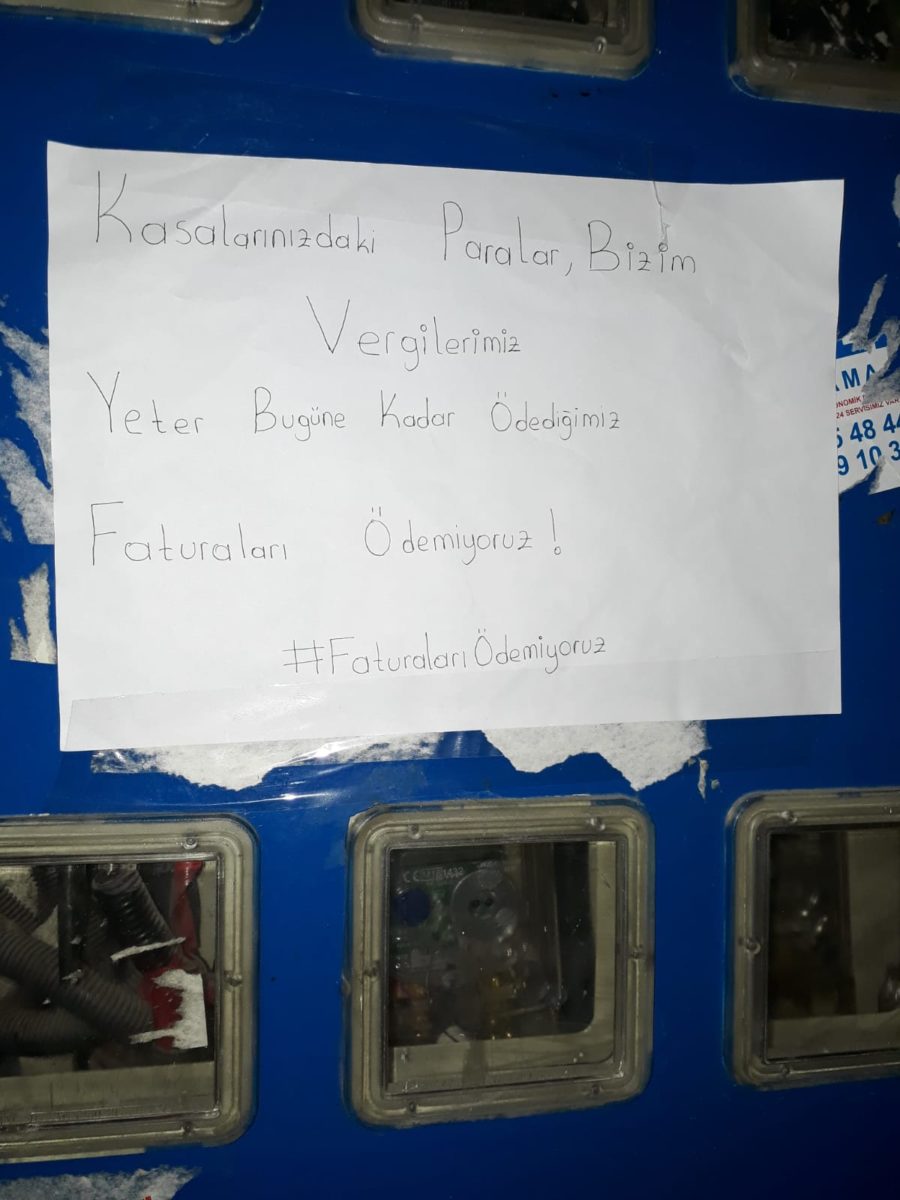 Kasalarınızdaki Paralar, Bizim
Vergilerimiz
Yeter Bugüne Kadar Ödediğimiz
Faturaları Ödemiyoruz!
#FaturalarıÖdemiyoruz
AMA
24 SERVİSİMİZ VAR
48 44
9 10 3